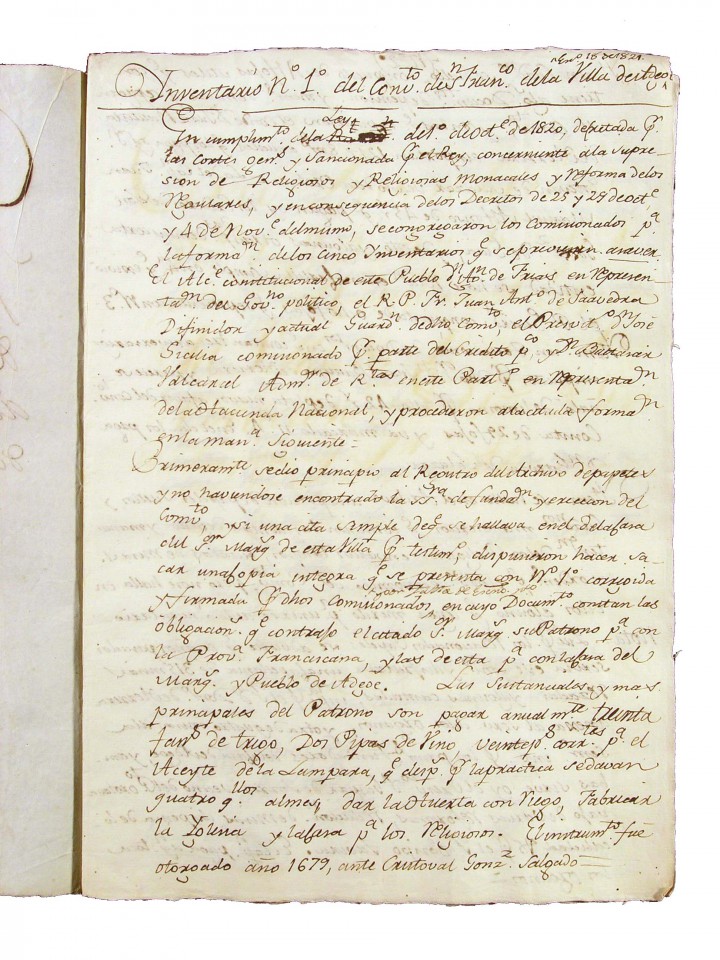 En.º 16 de 1821.
Inventario N.º 1.º del Conv.to de S.n Fran.co de la Villa de Adeje
En cumplim.to de la Ley del 1.º de oct.e de 1820, decretada p.r
las Cortes gen.s y Sancionada p.r el Rey, concerniente a la supre-
sion de Religiosos y Religiosas Monacales y reforma de los
Regulares, y en consequencia de los Decretos de 25 y 29 de oct.e
y 4 de Nov.e del mismo, se congregaron los Comisionados p.a
la forma.n de los cinco Inventarios q.e se previenen a saver.
El Alc.e constitucional de este Pueblo D.n Ant.o de Frias en represen-
ta.n del Gov.no politico, el R. P. Fr. Juan Ant.o de Saavedra
Difinidor y actual Guard.n de dho Conv.to, el Presvit.o D.n José
Sicilia comisionado p.r parte del Credito p.co y D.n Baltasar
Valcarcel Adm.or de R.tas en este Part.o en representa.n
de la Hacienda Nacional, y procedieron a la cit.da forma.n
en la man.a siguiente =
Primeram.te se dio principio al Registro del Archivo de papeles
y no haviendose encontrado la Ess.ra de funda.n y ereccion del
Conv.to, y si una cita simple de q.e se hallava en el de la casa
del S.or Marq.s de esta Villa p.r testim.o, dispusieron hacer sa-
car una copia integra q.e se presenta con N.º 1.º corregida
y firmada p.r dhos comisionados, por falta de Escno. p.co en cuyo Docum.to constan las
obligacion.s q.e contrajo el citado S.or Marq.s su Patrono p.a con
la Prov.a Franciscana, y las de esta p.a con la casa del
Marq.s y Pueblo de Adeje. Las Sustanciales y mas
principales del Patrono son pagar anualm.te treinta
fan.s de trigo, Dos Pipas de Vino, veinte y ocho r.tas p.a el
Aceyte de la Lampara, q.e desp.s p.r la practica se davan
quatro q.llos al mes, dar la Huerta con riego, Fabricar
la Iglesia y la casa p.a los Religiosos. El instrum.to fue
otorgado año 1679, ante Cristoval Gonz.z Salgado =